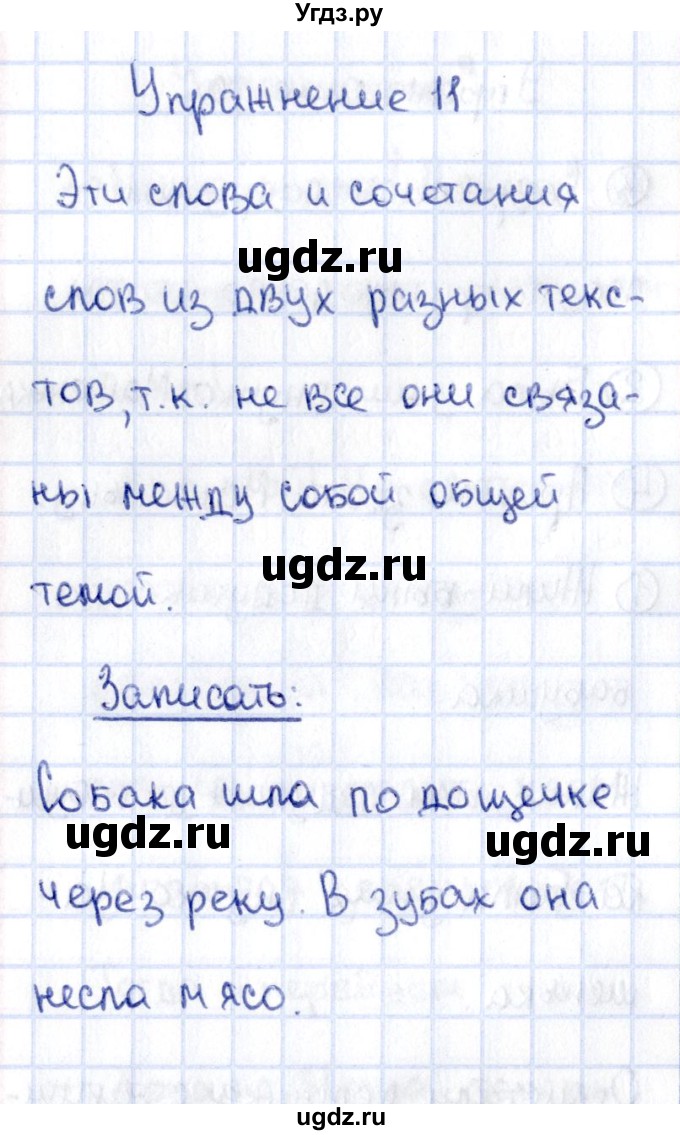 Угдз.ру
Упражнение 11
Эти слова и сочетания
ugdz.ru
слов из двух разных текс-
тов, т.к. не все они связа-
ны между собой общей
ugdz.ru
темой.
Записать:
Собака шла по дощечке
ugdz.ru ugdz.ru
через реку. В зубах она
несла мясо.
ugdz.ru